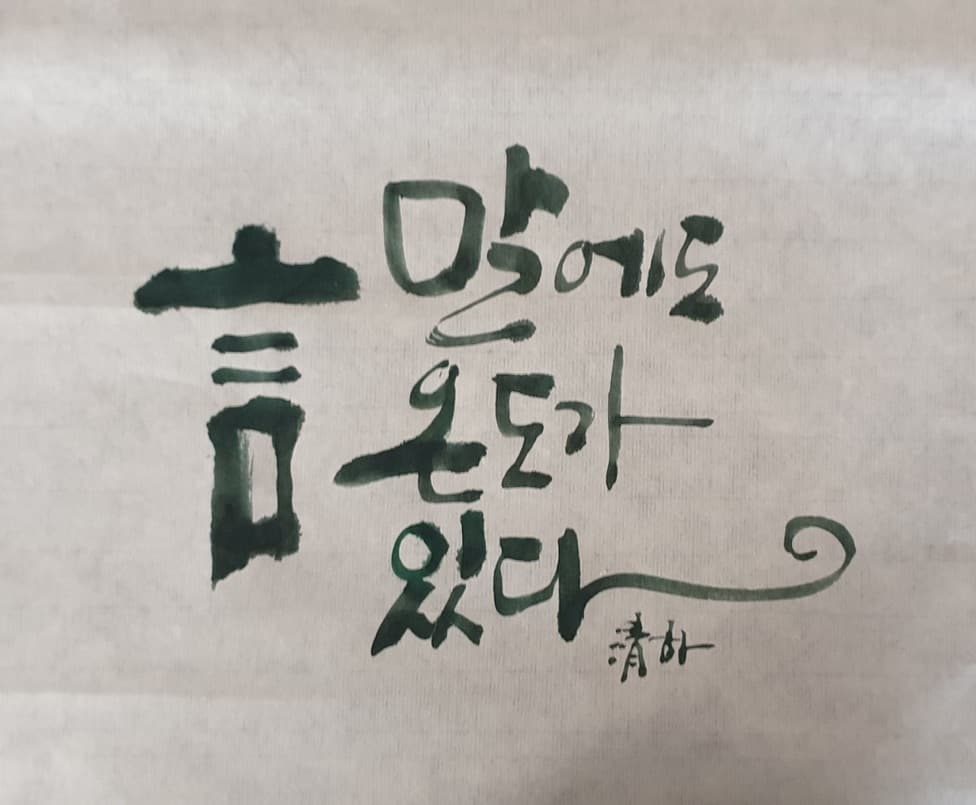 言
말에도
온도가
있다
清하